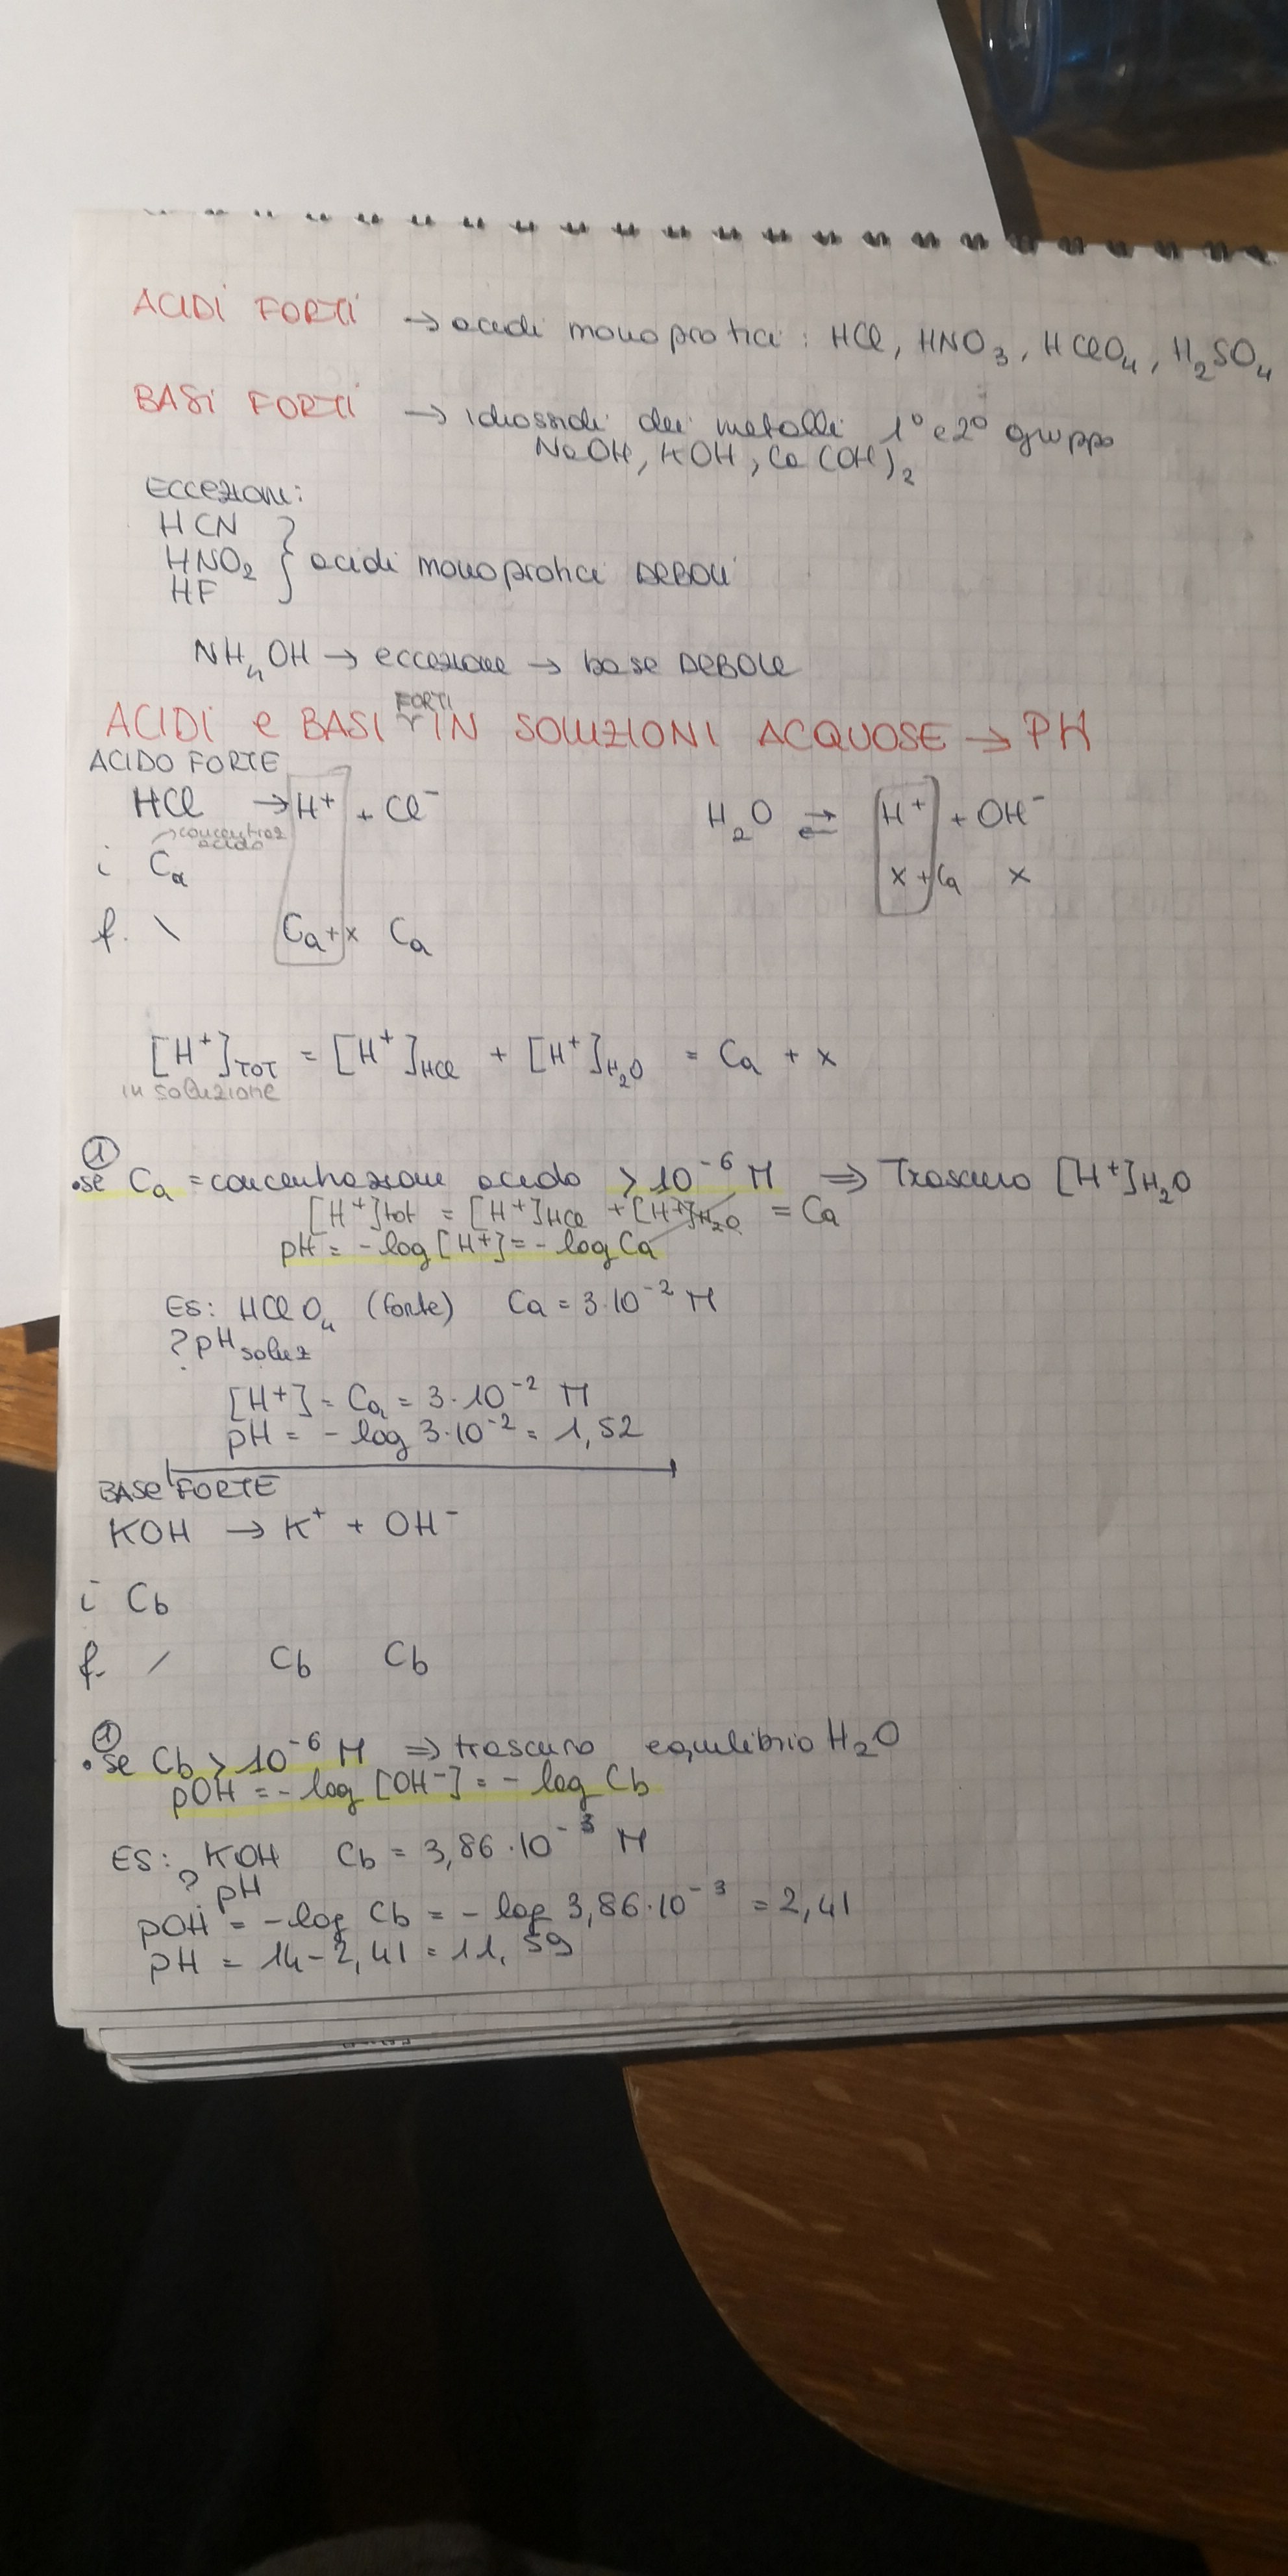 ACIDI FORTI → acidi monoprotici: HCl, HNO₃, HClO₄, H₂SO₄
BASI FORTI → idrossidi dei metalli 1° e 2° gruppo
NaOH, KOH, Ca(OH)₂
Eccezioni:
HCN
HNO₂ } acidi monoprotici DEBOLI
HF
NH₄OH → eccezione → base DEBOLE
ACIDI e BASI FORTI IN SOLUZIONI ACQUOSE → PH
ACIDO FORTE
HCl → H⁺ + Cl⁻ H₂O ⇄ H⁺ + OH⁻
→ concentraz acido
i Ca x + Ca x
f. \ Ca + x Ca
[H⁺]TOT = [H⁺]HCl + [H⁺]H₂O = Ca + x
in soluzione
①
• se Ca = concentrazione acido > 10⁻⁶ M ⇒ Trascuro [H⁺]H₂O
[H⁺]tot = [H⁺]HCl + [H⁺]H₂O = Ca
pH = - log [H⁺] = - log Ca
ES: HClO₄ (forte) Ca = 3·10⁻² M
? pH soluz
[H⁺] = Ca = 3·10⁻² M
pH = - log 3·10⁻² = 1,52
BASE FORTE
KOH → K⁺ + OH⁻
i Cb
f. / Cb Cb
①
• se Cb > 10⁻⁶ M ⇒ trascuro equilibrio H₂O
pOH = - log [OH⁻] = - log Cb
ES: KOH Cb = 3,86·10⁻³ M
? pH
pOH = - log Cb = - log 3,86·10⁻³ = 2,41
pH = 14 - 2,41 = 11,59